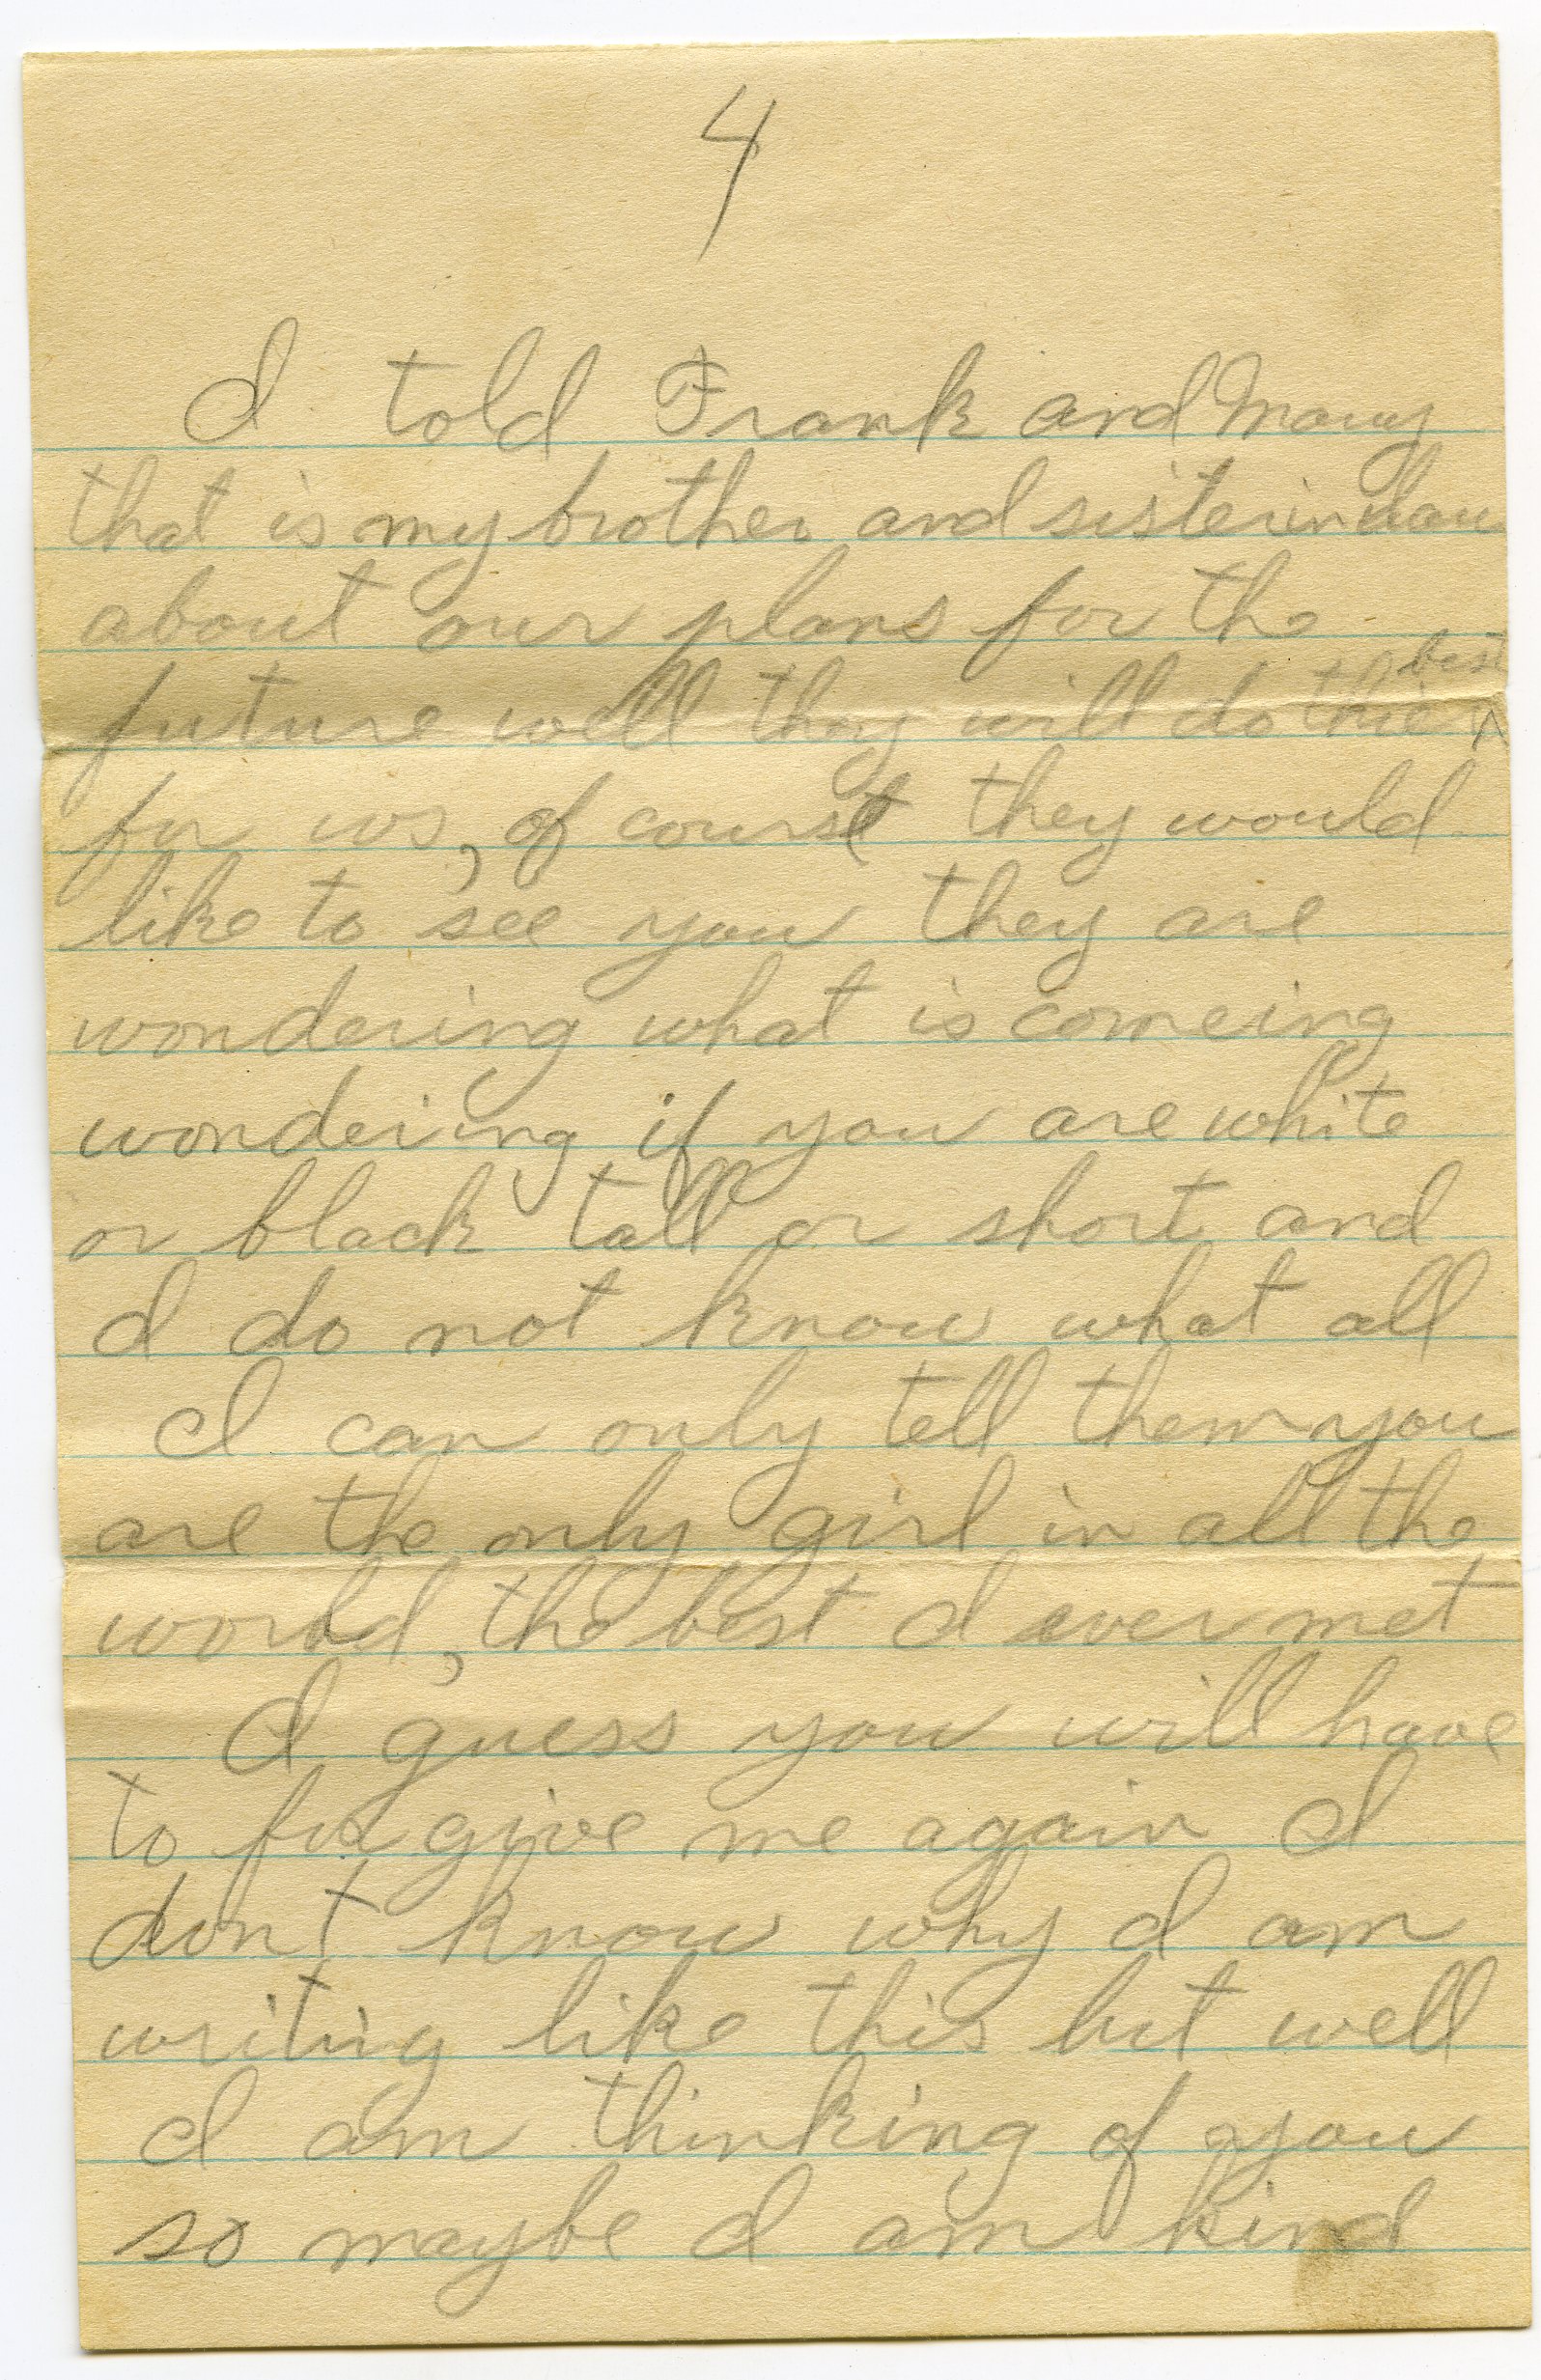 4
I told Frank and Mary
that is my brother and sisterinlaw
about our plans for the
best
future well they will do thier ^
for us, of course they would
like to see you they are
wondering what is comeing
wondering if you are white
or black tall or short and
I do not know what all
I can only tell them you
are the only girl in all the
world, the best I ever met
I guess you will have
to forgive me again I
dont know why I am
writing like this but well
I am thinking of you
so maybe I am kind